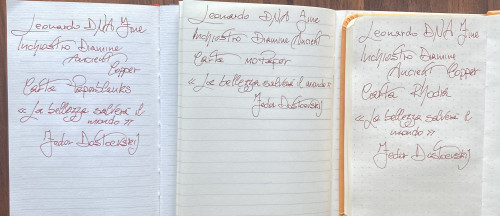 Leonardo DNA Fine
Inchiostro Diamine
Ancient
Copper
Carta Paperblanks
« La bellezza salverà il
mondo »
Fedor Dostoevskij
Leonardo DNA Fine
Inchiostro Diamine Ancient
Carta
« La bellezza salverà il mondo »
Fedor Dostoevskij
Leonardo DNA Fine
Inchiostro Diamine
Ancient Copper
Carta Rhodia
« La bellezza salverà il
mondo »
Fedor Dostoevskij